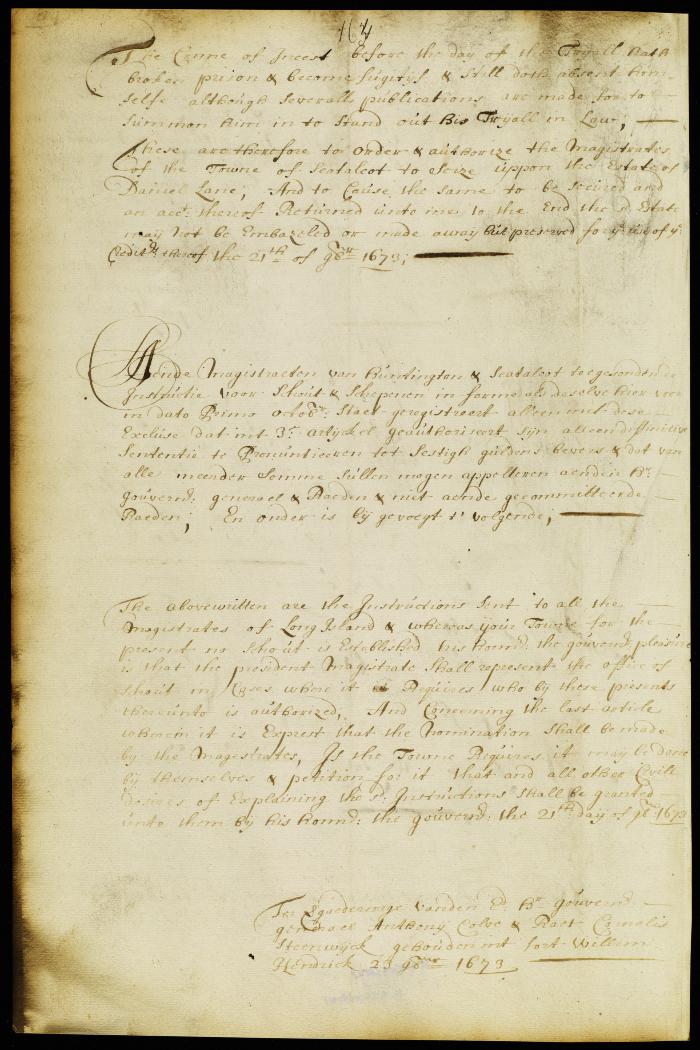 164
The Crime of Incest before the day of the Tryall hath
broken prison & become fugityf & still doth absent him-
selfe although severall publications are made for to
summon him in to stand out his Tryall in Law;
These are therefore to order & authorize the Magistrates
of the Towne of Seatalcot to seize uppon the Estate of
Daniel Lane; And to Cause the same to be secured and
an acct: thereof Returned unto me to the End the sd Estate
may not be Embazeled or made away but preserved for ye use of ye
Creditrs thereof the 21th of 9br 1673;
Aende Magistraeten van Huntington & Seatalcot toegesonden de
Instructie voor Schout & Schepenen in forme als deselve hier voor
in dato Primo octobr: staet geregistreert alleen met dese
Excluse dat int 3e artyckel geauthoriseert sijn alleen deffinitive
Sententie te Pronuntieeren tot sestigh guldens bevers & dat van
alle meerder somme sullen mogen appelleren aenden Hr
gouvernr: generael & Raeden & niet aende gecommitteerde
Raeden; En onder is bij gevoegt t' volgende;
The abovewritten are the Instructions sent to all the
Magistrates of Long Island & whereas your Towne for the
present no Schout is Established his honnrs: the gouvernrs: pleasure
is that the president Magistrate shall represent the office of
Schout in Cases where it Requires who by these presents
thereunto is authorized; And Concerning the last article
wherein it is Exprest that the Nomination shall be made
by the Magestrates, If the Towne Requires it may be done
by themselves & petition for it that and all other Civile
desires of Explaining the sd. Instructions shall be granted
unto them by his honnr: the gouvernr: the 21th day of 9br 1673
Ter Vergaderinge vanden Ed. Hr gouvernr
generael Anthony Colve & Raet Cornelis
Steenwyck gehouden int fort Willem
Hendrick 23 9bre 1673